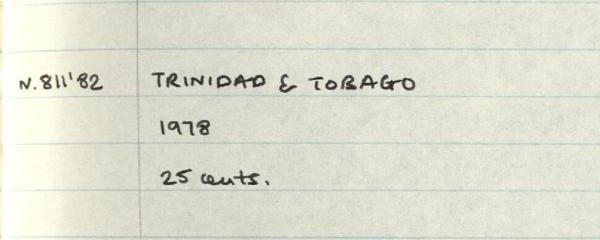 N.811'82 TRINIDAD & TOBAGO
1978
25 cents.